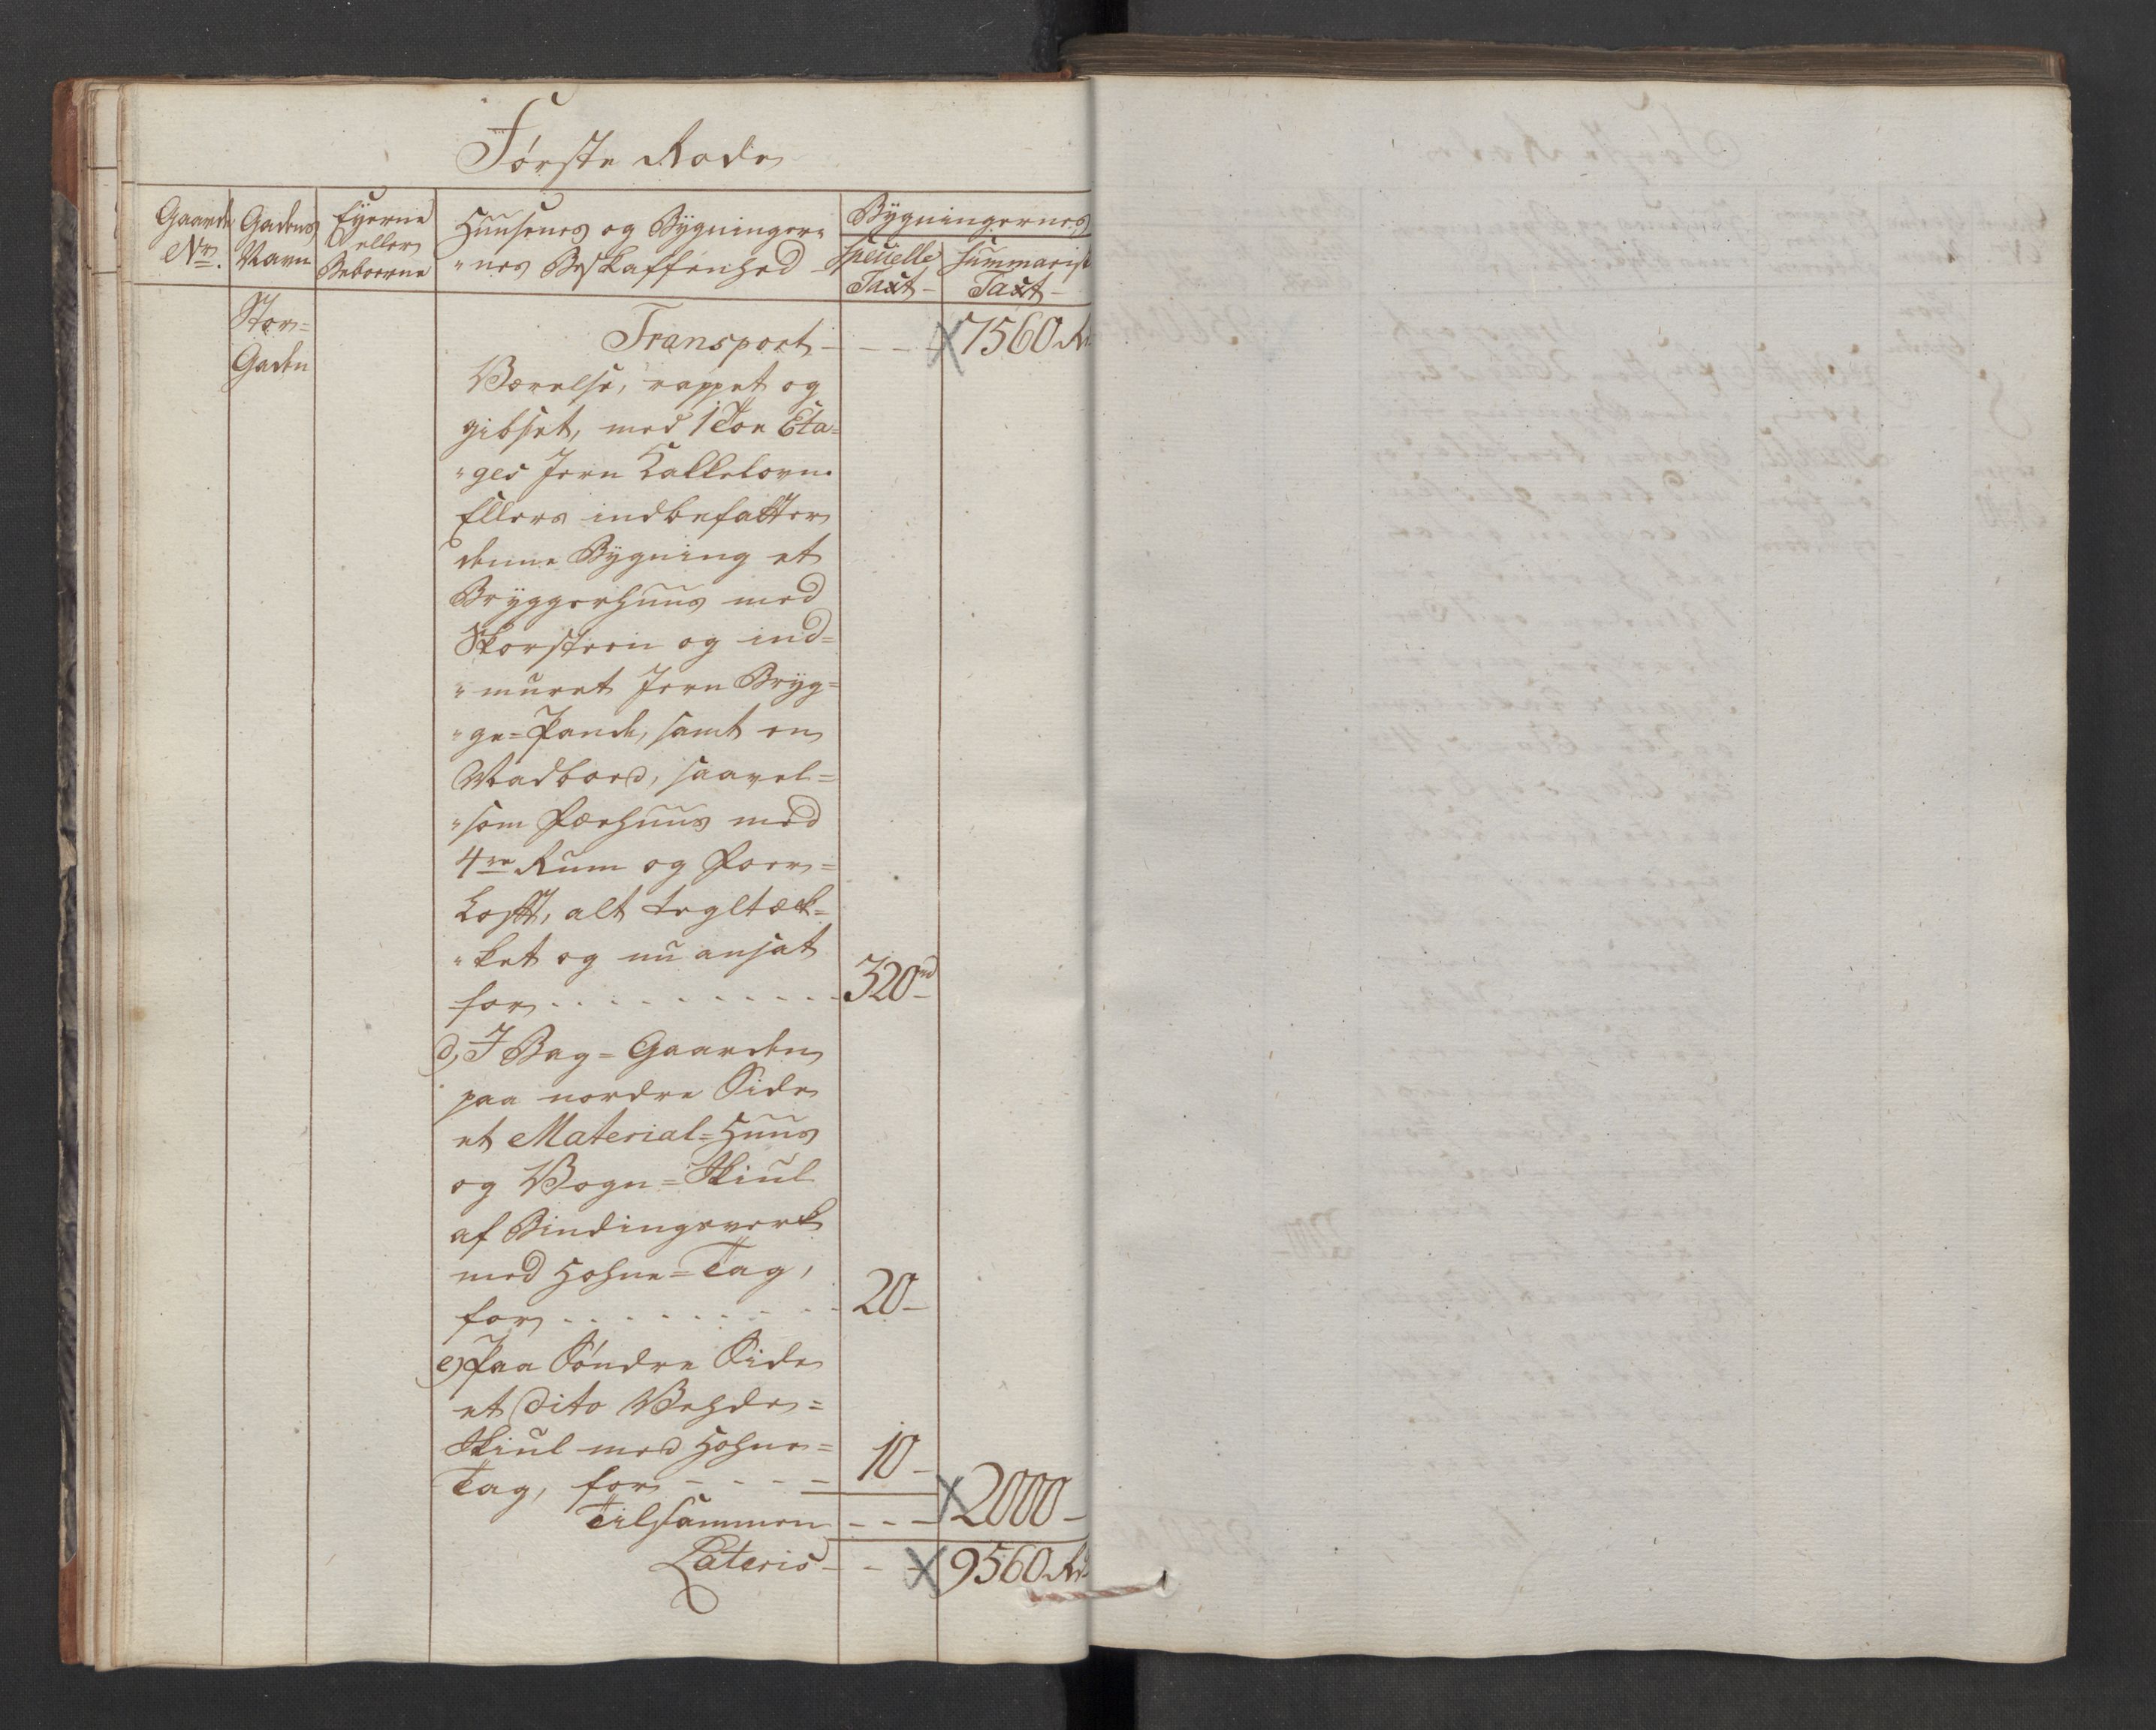 Første Rode
Gaards No. | Gadens Navn | Eyerne eller Beboerne | Huusenes og Bygninger- | Bygningernes
"nes Beskaffenhed | specielle Taxt - | summarisk Taxt -
Stor=
Gaden
Transport - - - - 7560 Rd
Værelse, rappet og
gibset, med 1 Toe Eta=
"ges Jern Kakkelovn.
Ellers indbefatter
denne Bygning et
Bryggerhuus med
Skorsteen og ind=
"muret Jern Bryg=
"ge=Pande, samt en
Madboed, saavel=
"som Færhuus med
4re Rum og Foer=
Loft, alt tegltæk=
"ket og nu ansat
for - - - - - - 320 rd
d, I Bag=Gaarden
paa nordre Side
et Material=Huus
og Vogn=Skiul
af Bindingsverk
med Hohne=Tag,
for - - - - - - 20 -
e) Paa Søndre Side
et dito Vehde=
Skiul med Hohne=
Tag, for - - - - 10 -
Tilsammen - - - 2000 -
Lateris - - - 9560 Rd